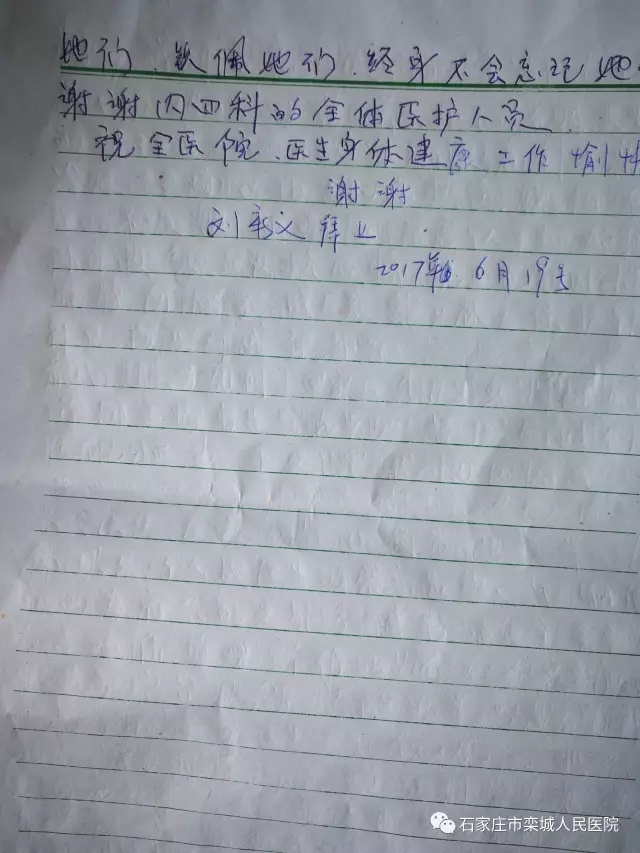 她们、钦佩她们、经身不会忘记她
谢谢内四科的全体医护人员.
祝全医院、医生身体建康工作愉快
谢谢
刘 义拜上
2017年6月19号
石家庄市栾城人民医院